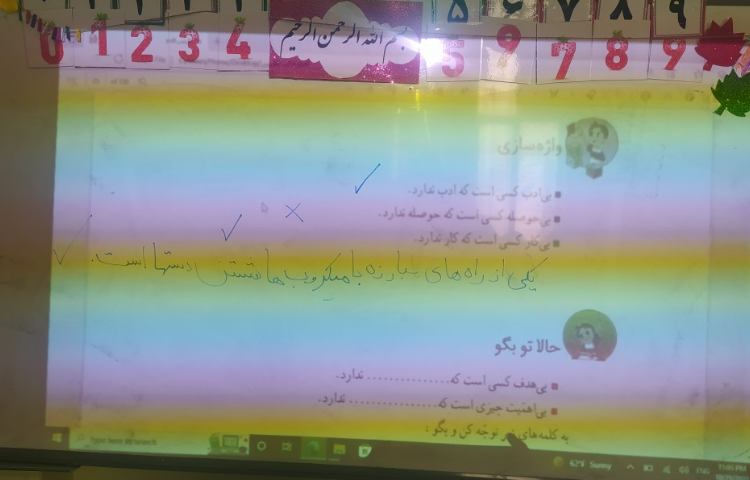 0 1 2 3 4 بسم الله الرحمن الرحیم 5 9 7 8 9
۵ ۶ ۷ ۸ ۹
واژه‌سازی
بی‌ادب کسی است که ادب ندارد.
بی‌حوصله کسی است که حوصله ندارد.
کسی است که کار ندارد.
یکی از راه های مبارزه با میکروب ها شستن دستها است.
حالا تو بگو
بی‌هدف کسی است که ............... ندارد.
بی‌اهمیّت چیزی است که ............... ندارد.
به کلمه‌های زیر توجّه کن و بگو :
Type here to search 62°F Sunny ENG